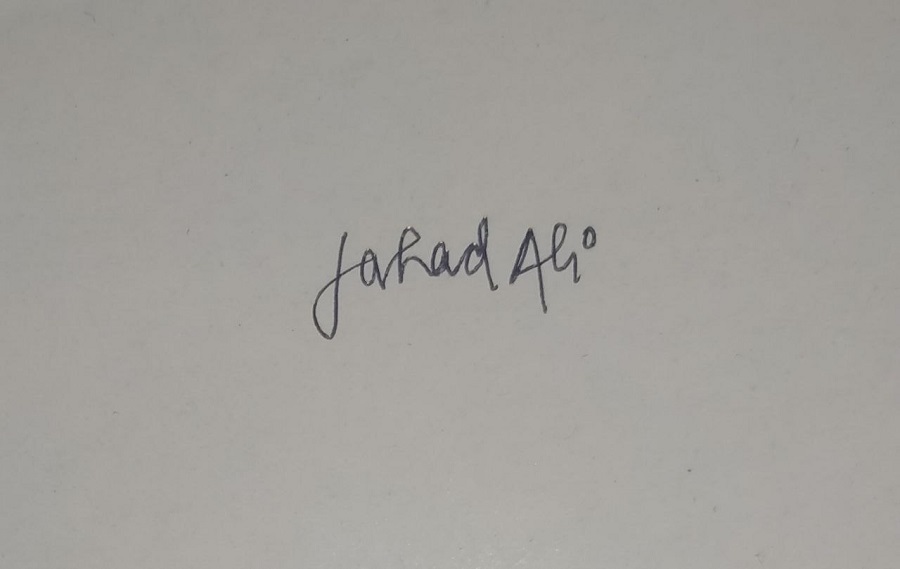 Jahad Ali